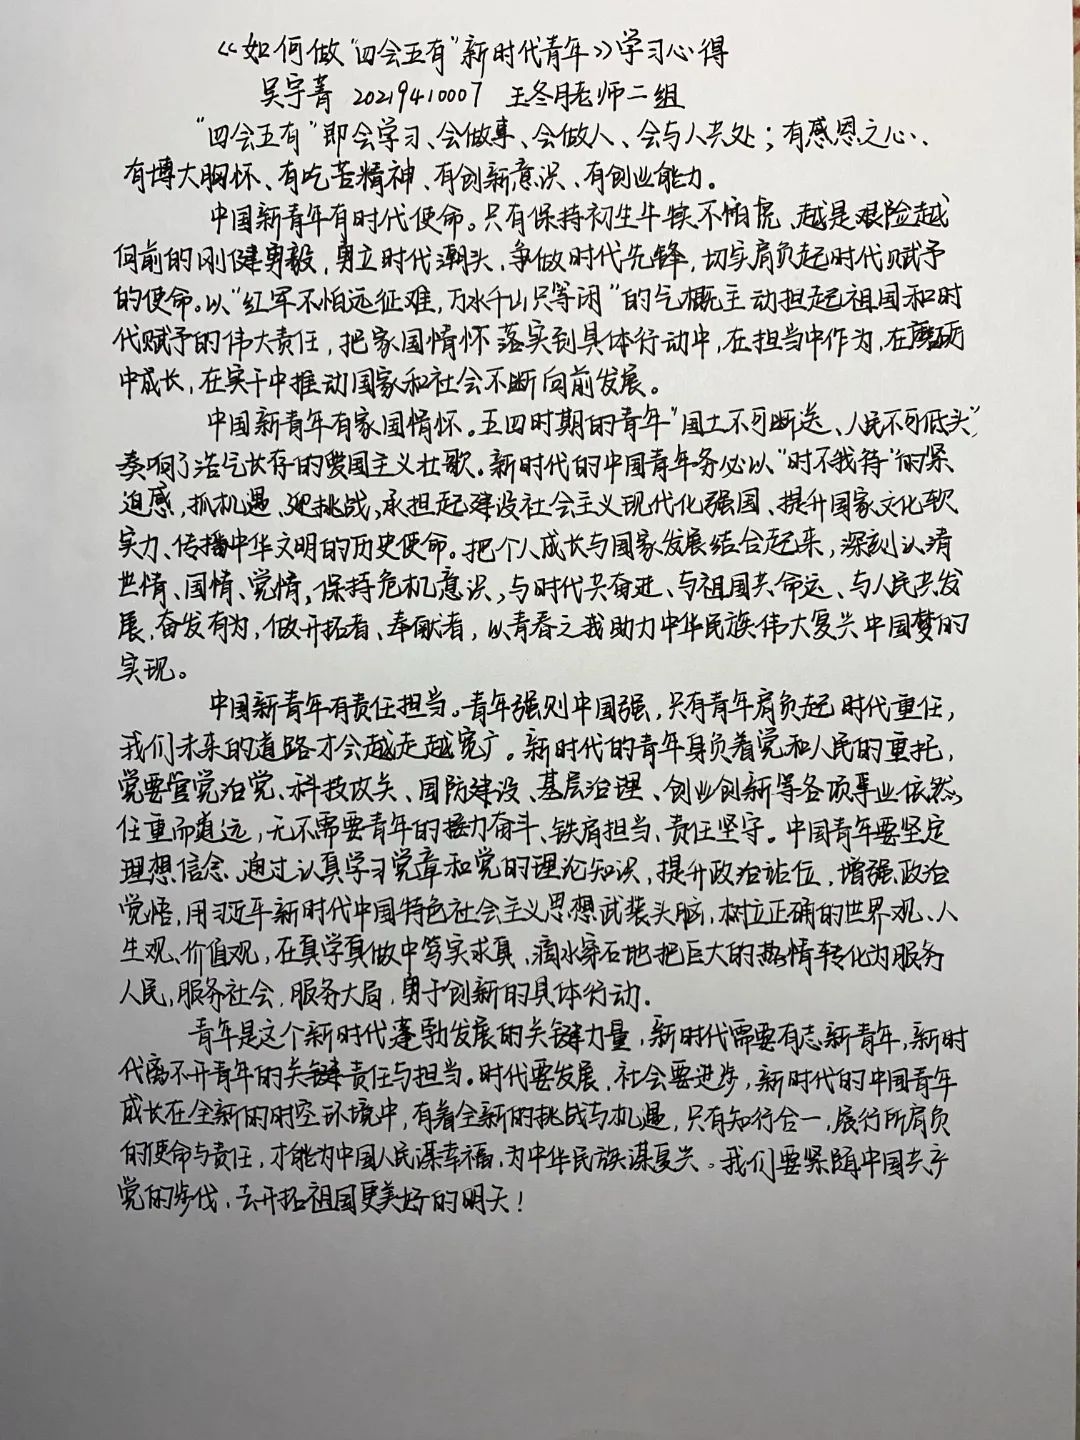 《如何做“四会五有”新时代青年》学习心得
吴宇菁 20219410007 王冬月老师二组
“四会五有”即会学习、会做事、会做人、会与人共处；有感恩之心、
有博大胸怀、有吃苦精神、有创新意识、有创业能力。
中国新青年有时代使命。只有保持初生牛犊不怕虎、越是艰险越
向前的刚健勇毅，勇立时代潮头，争做时代先锋，切实肩负起时代赋予
的使命。以“红军不怕远征难，万水千山只等闲”的气概主动担起祖国和时
代赋予的伟大责任，把家国情怀落实到具体行动中，在担当中作为，在磨砺
中成长，在实干中推动国家和社会不断向前发展。
中国新青年有家国情怀。五四时期的青年“国土不可断送、人民不可低头”，
奏响了浩气长存的爱国主义壮歌。新时代的中国青年务必以“时不我待”的紧
迫感，抓机遇、迎挑战，承担起建设社会主义现代化强国、提升国家文化软
实力、传播中华文明的历史使命。把个人成长与国家发展结合起来，深刻认清
世情、国情、党情，保持危机意识，与时代共奋进、与祖国共命运、与人民共发
展，奋发有为，做开拓者、奉献者，以青春之我助力中华民族伟大复兴中国梦的
实现。
中国新青年有责任担当。青年强则中国强，只有青年肩负起时代重任，
我们未来的道路才会越走越宽广。新时代的青年身负着党和人民的重托，
党要管党治党、科技攻关、国防建设、基层治理、创业创新等各项事业依然
任重而道远，无不需要青年的接力奋斗、铁肩担当、责任坚守。中国青年要坚定
理想信念，通过认真学习党章和党的理论知识，提升政治站位，增强政治
觉悟，用习近平新时代中国特色社会主义思想武装头脑，树立正确的世界观、人
生观、价值观，在真学真做中笃实求真，滴水穿石地把巨大的热情转化为服务
人民，服务社会，服务大局，勇于创新的具体行动。
青年是这个新时代蓬勃发展的关键力量，新时代需要有志新青年，新时
代离不开青年的关键责任与担当。时代要发展，社会要进步，新时代的中国青年
成长在全新的时空环境中，有着全新的挑战与机遇，只有知行合一，履行所肩负
的使命与责任，才能为中国人民谋幸福，为中华民族谋复兴。我们要紧随中国共产
党的步伐，去开拓祖国更美好的明天！